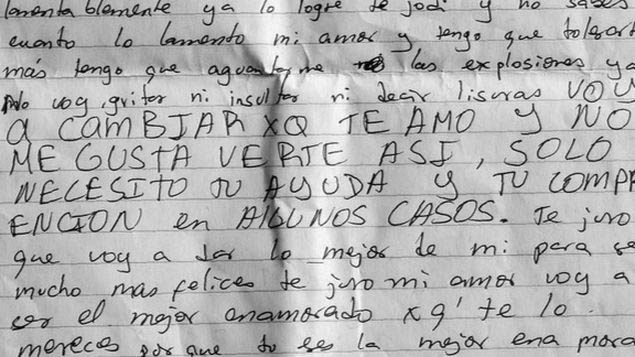 lamentablemente ya lo logre te jodi y no sabes
cuanto lo lamento mi amor y tengo que tolerart
más tengo que aguantarme las explosiones ya
No voy gritar ni insultar ni decir lisuras VOY
a CAMBIAR XQ TE AMO Y NO
ME GUSTA VERTE ASI, SOLO
NECESITO TU AYUDA Y TU COMPR
ENCION en ALGUNOS CASOS. Te juro
que voy a dar lo mejor de mi para se
mucho mas felices te juro mi amor voy a
ser el mejor enamorado x q' te lo
mereces porque tu es la mejor ena mora